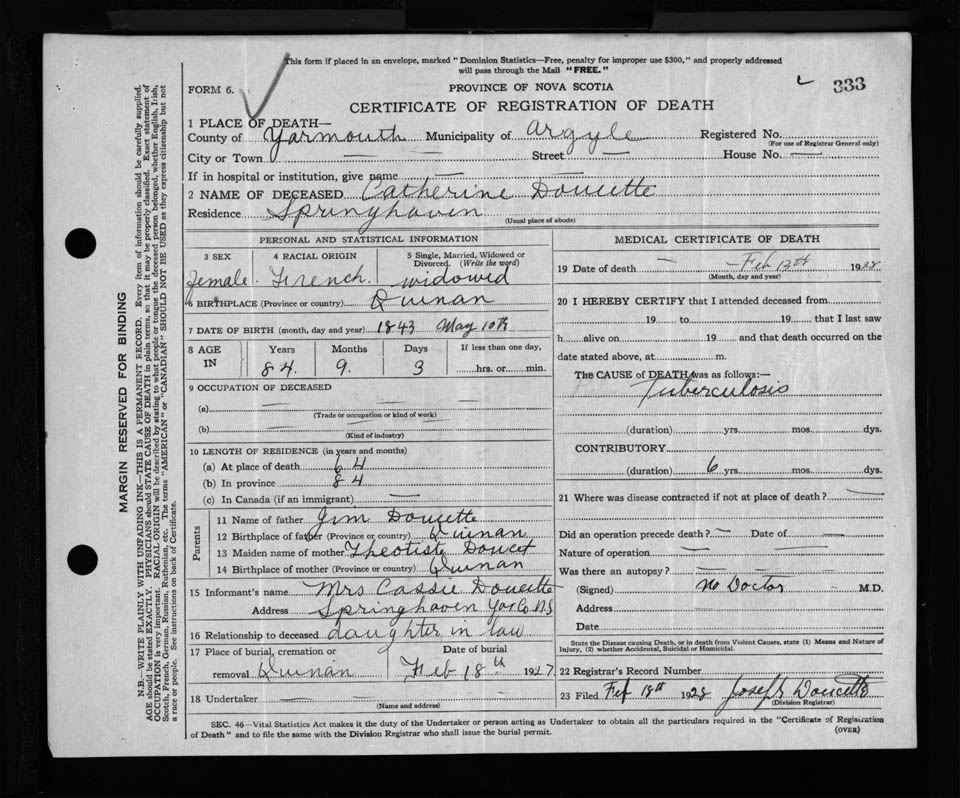 This form if placed in an envelope, marked "Dominion Statistics—Free, penalty for improper use $300," and properly addressed
will pass through the Mail "FREE."
FORM 6.
PROVINCE OF NOVA SCOTIA
333
CERTIFICATE OF REGISTRATION OF DEATH
1 PLACE OF DEATH—
County of Yarmouth Municipality of Argyle Registered No.
(For use of Registrar General only)
City or Town — — Street — House No. —
If in hospital or institution, give name — —
2 NAME OF DECEASED Catherine Doucette
Residence Springhaven
(Usual place of abode)
PERSONAL AND STATISTICAL INFORMATION
3 SEX 4 RACIAL ORIGIN 5 Single, Married, Widowed or
Divorced. (Write the word)
Female. French. widowed
6 BIRTHPLACE (Province or country) Quinan
7 DATE OF BIRTH (month, day and year) 1843 May 10th
8 AGE IN Years Months Days If less than one day,
84. 9. 3 hrs. or min.
9 OCCUPATION OF DECEASED
(a) — —
(Trade or occupation or kind of work)
(b) — —
(Kind of industry)
10 LENGTH OF RESIDENCE (in years and months)
(a) At place of death 64
(b) In province 84
(c) In Canada (if an immigrant) —
Parents
11 Name of father Jim Doucette
12 Birthplace of father (Province or country) Quinan
13 Maiden name of mother Theotiste Doucet
14 Birthplace of mother (Province or country) Quinan
15 Informant's name Mrs Cassie Doucette
Address Springhaven Yar Co. N.S
16 Relationship to deceased daughter in law
17 Place of burial, cremation or Date of burial
removal Quinan Feb 18th 1927
18 Undertaker — —
(Name and address)
MEDICAL CERTIFICATE OF DEATH
19 Date of death — —Feb 13th 1928
(Month, day and year)
20 I HEREBY CERTIFY that I attended deceased from
19 to 19 that I last saw
h alive on 19 and that death occurred on the
date stated above, at m.
The CAUSE of DEATH was as follows:—
Tuberculosis
(duration) yrs. mos. dys.
CONTRIBUTORY
(duration) 6 yrs. mos. dys.
21 Where was disease contracted if not at place of death? —
Did an operation precede death? — Date of —
Nature of operation — —
Was there an autopsy? — —
(Signed) No Doctor M.D.
Address
Date
State the Disease causing Death, or in death from Violent Causes, state (1) Means and Nature of
Injury, (2) whether Accidental, Suicidal or Homicidal.
22 Registrar's Record Number
23 Filed Feb 18th 1928 Joseph Doucette
(Division Registrar)
SEC. 46—Vital Statistics Act makes it the duty of the Undertaker or person acting as Undertaker to obtain all the particulars required in the "Certificate of Registration
of Death" and to file the same with the Division Registrar who shall issue the burial permit.
(OVER)
MARGIN RESERVED FOR BINDING
N.B.—WRITE PLAINLY WITH UNFADING INK—THIS IS A PERMANENT RECORD. Every item of information should be carefully supplied.
AGE should be stated EXACTLY. PHYSICIANS should STATE CAUSE OF DEATH in plain terms, so that it may be properly classified. Exact statement of
OCCUPATION is very important. RACIAL ORIGIN will be described by stating to what people or tongue the deceased person belonged, whether English, Irish,
Scotch, French, German, Russian, Ruthenian, etc. The terms "AMERICAN" or "CANADIAN" SHOULD NOT BE USED as they express citizenship but not
a race or people. See instructions on back of Certificate.